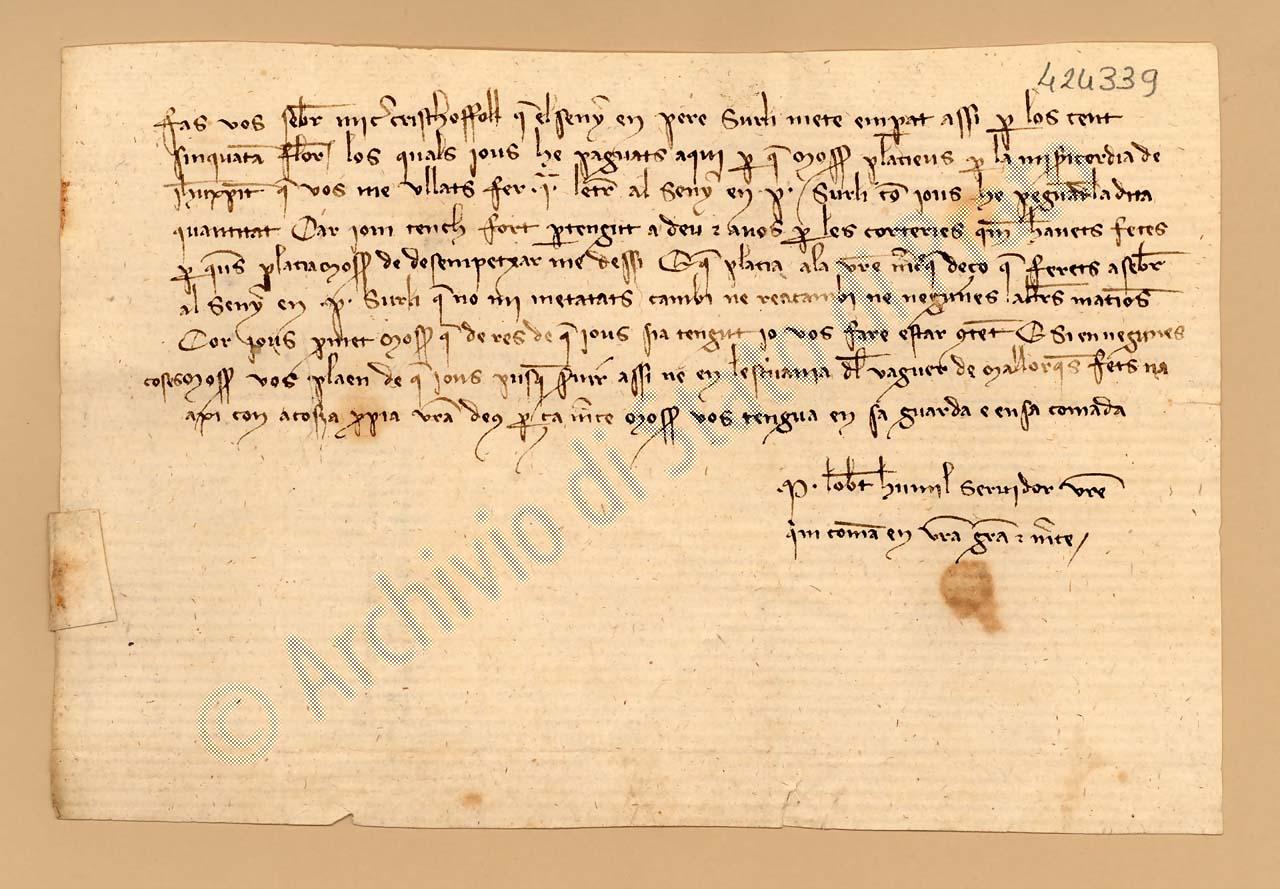 424339
Fas vos sebr micer cristhoffoll q el seny en pere Surli mete empat assi p los cent
sinquāta flor los quals ious he paguats aqui p q Moss placieus p la misricordia de
Ihuxpist q vos me vllats fer .i. letr al seny en p. Surli cō ious he la dita
quantitat Car iom tench fort ptengut a deu e a vos p les corteries qm havets fetes
p qus placia Moss de desempetxar me dessi E q placia a la vre merce deço q ferets a sebr
al Seny en .P. Surli q no mi meta cambi ne reacambi ne negunes altrs matios
Cor ious pmet Moss q de res de q ious sia tengut io vos fare estar 9tet E Si en negunes
coses Moss vos plaen de q ious pusq svir assi ne en del vaguer de Mallorqs fets na
axi con a cossa ppia vra deus p ça merce Moss vos tengua en sa guarda e en sa comada
.P. lobt humil servidor vre
qm comā en vra gra e merce
© Archivio di Stato